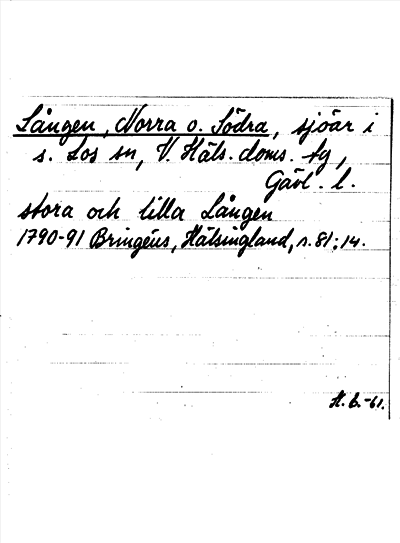 Lången, Norra o. Södra, sjöar i
s. Los sn, V. Häls. doms. tg,
Gävl. l.
stora och lilla Lången
1790-91 Bringéus, Hälsingland, s. 81; 14.
H. b. -61.